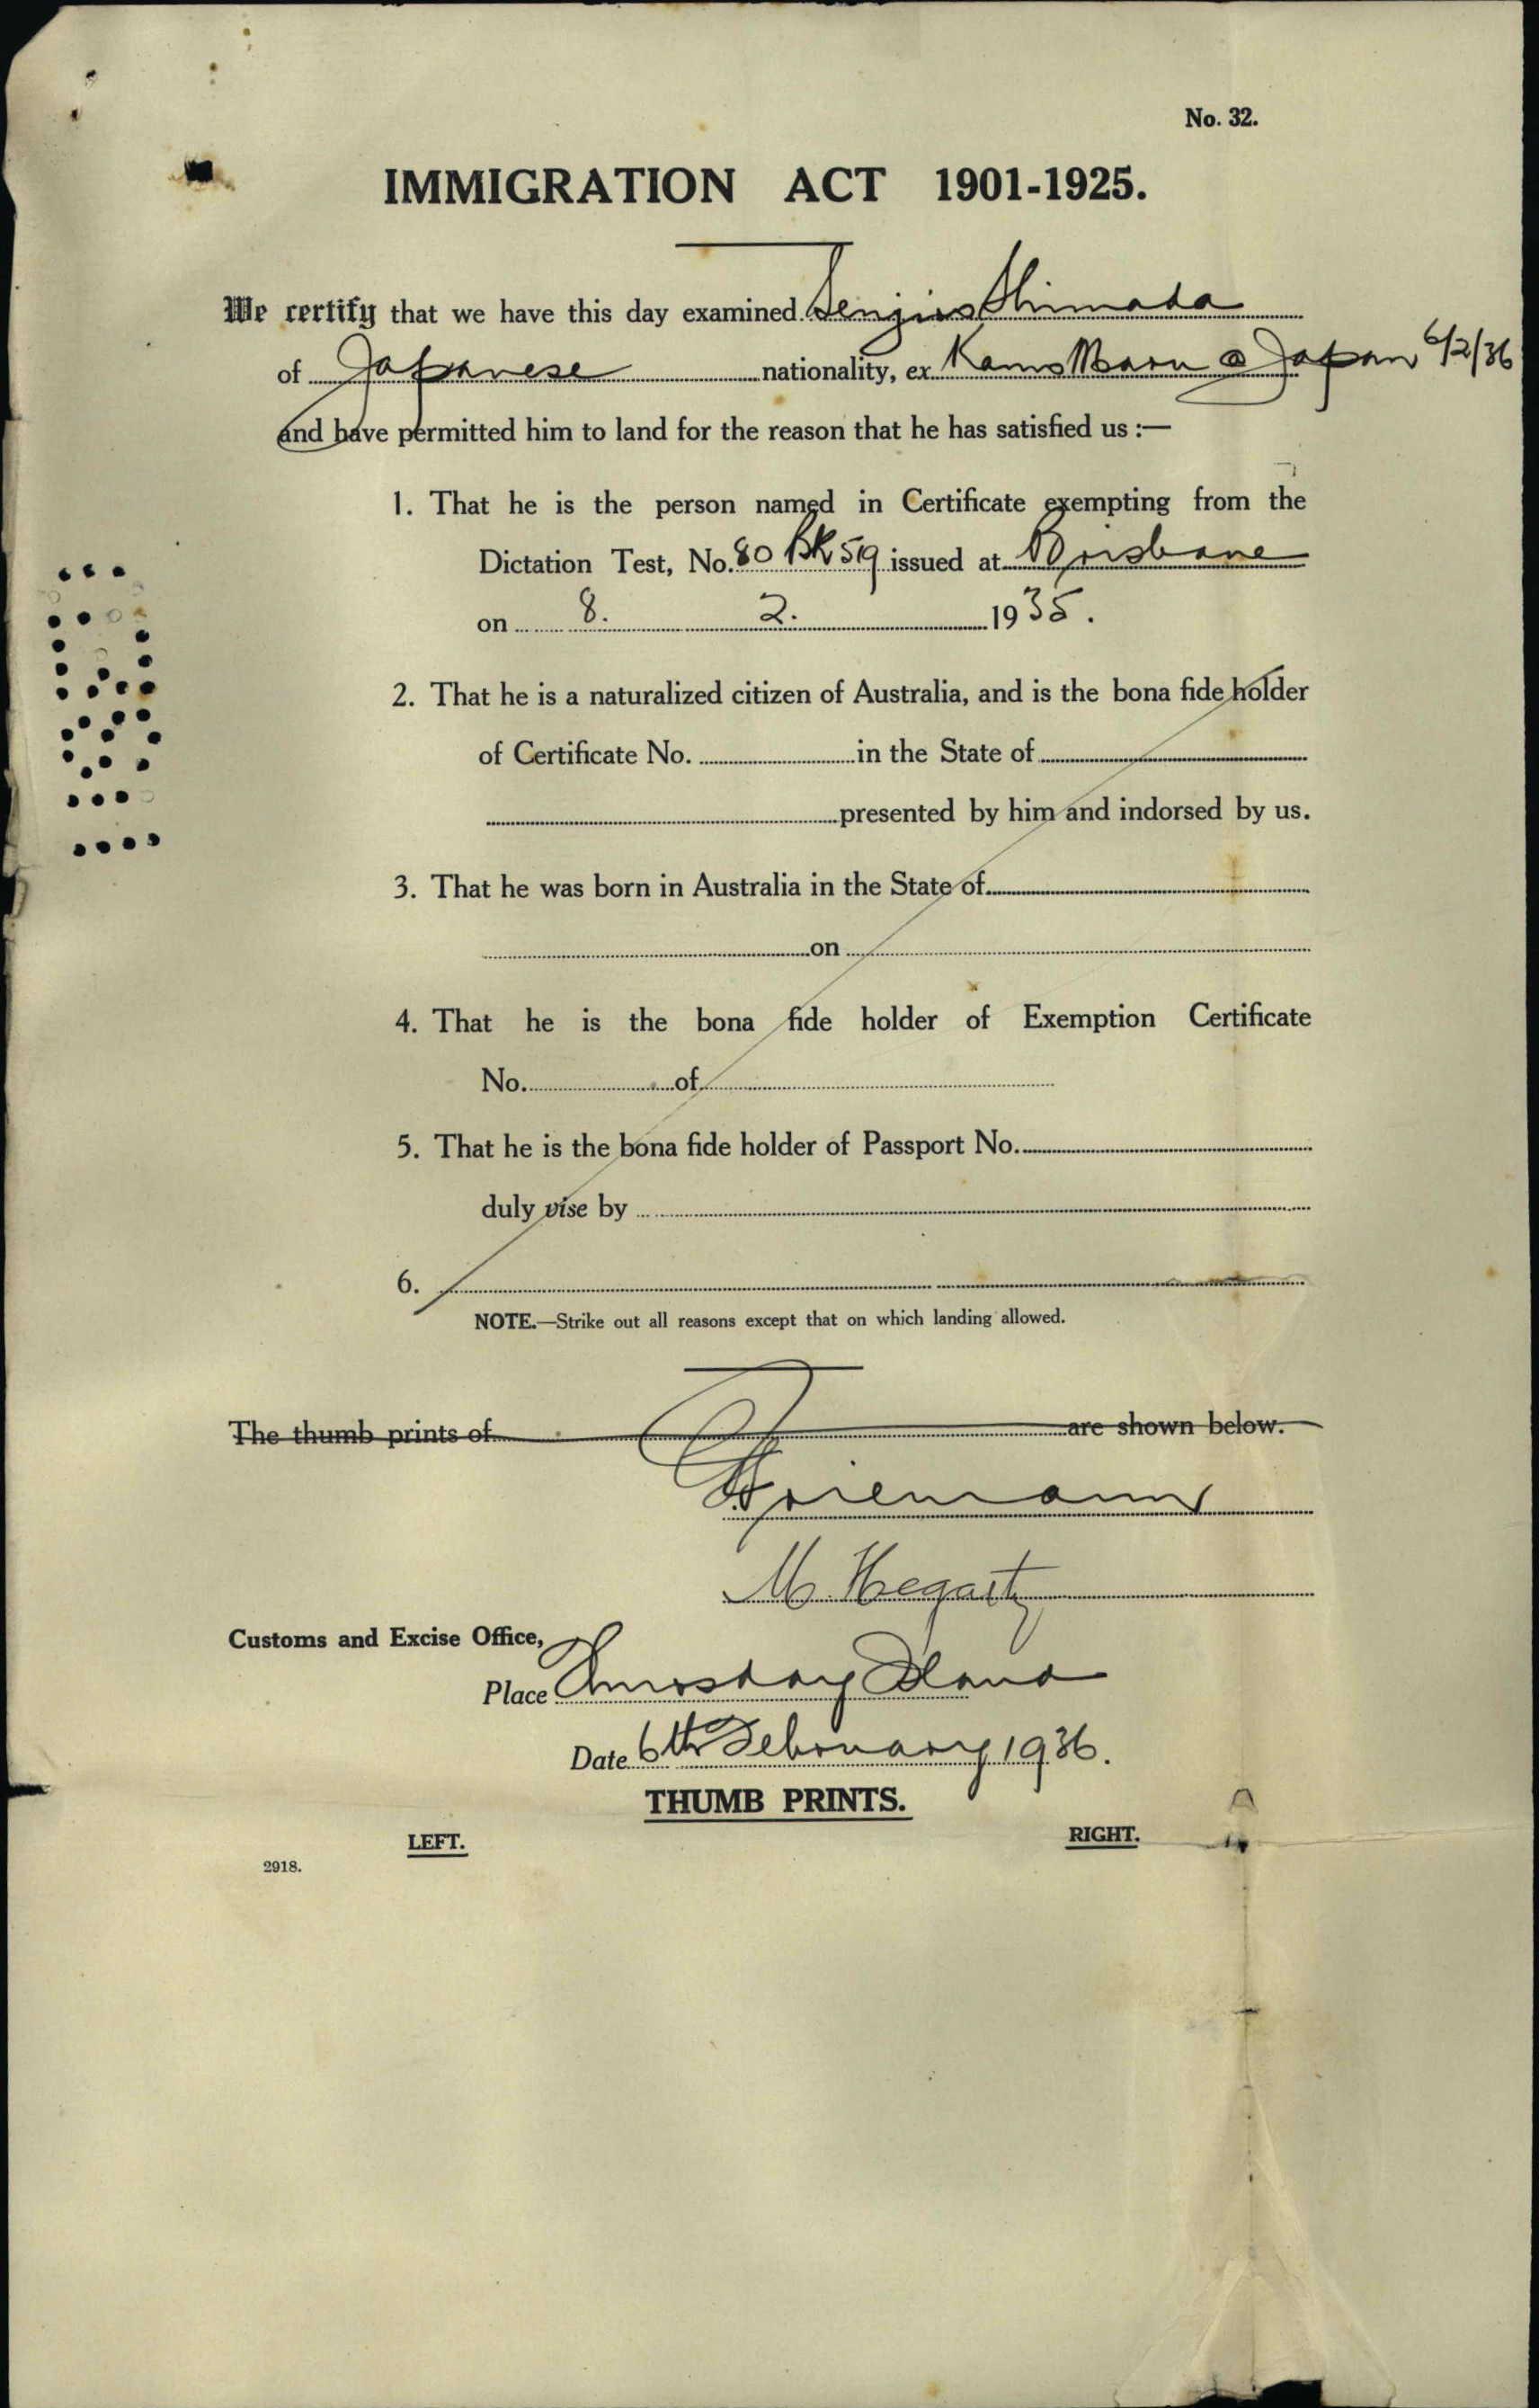 No. 32.
IMMIGRATION ACT 1901-1925.
We certify that we have this day examined Senjiro Shimada
of Japanese nationality, ex Kamo Maru @ Japan 6/2/36
and have permitted him to land for the reason that he has satisfied us :—
1. That he is the person named in Certificate exempting from the
Dictation Test, No. 80 BK 519 issued at Brisbane
on 8. 2. 1935.
2. That he is a naturalized citizen of Australia, and is the bona fide holder
of Certificate No. in the State of
presented by him and indorsed by us.
3. That he was born in Australia in the State of
on
4. That he is the bona fide holder of Exemption Certificate
No. of
5. That he is the bona fide holder of Passport No.
duly vise by
6.
NOTE.—Strike out all reasons except that on which landing allowed.
The thumb prints of are shown below.
M. Hegarty
Customs and Excise Office,
Place Thursday Island
Date 6th February 1936.
THUMB PRINTS.
LEFT. RIGHT.
2918.